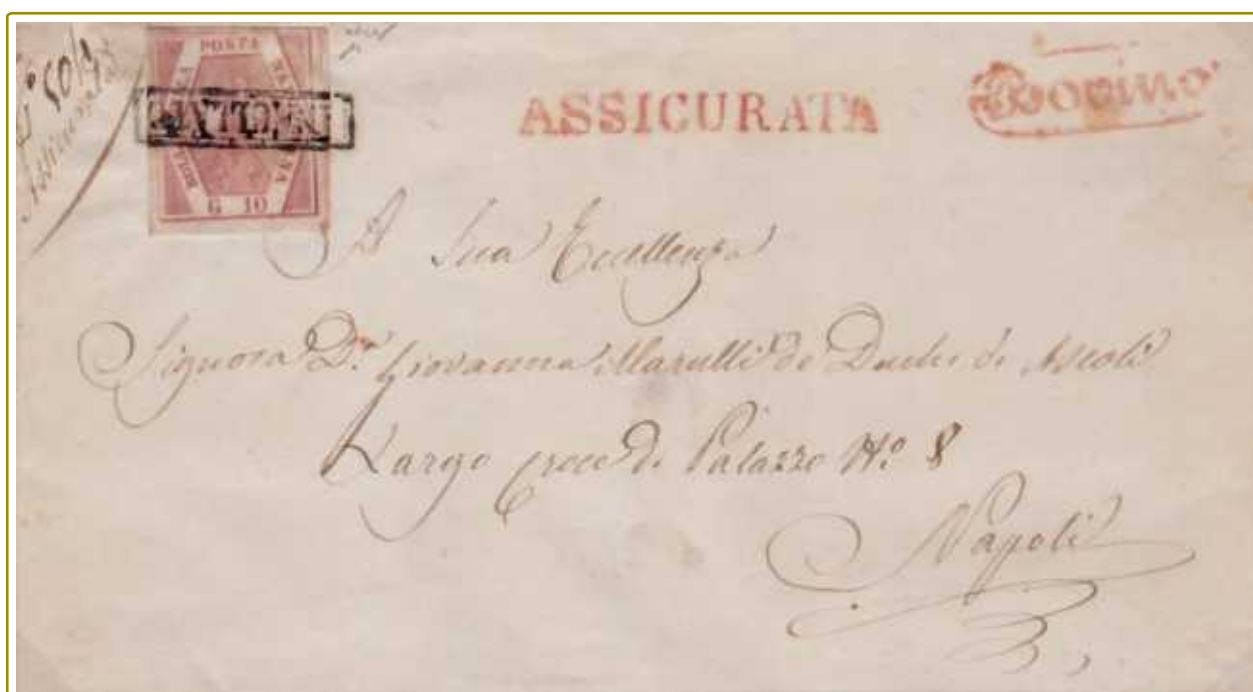 Assicurata
POSTA NAPOLETANA BOLLO
ANNULLATO
G. 10
ASSICURATA
Bovino
A Sua Eccellenza
Signora D.ª Giovanna Marulli de Duchi di Ascoli
Largo Croce di Palazzo Nº 8
Napoli